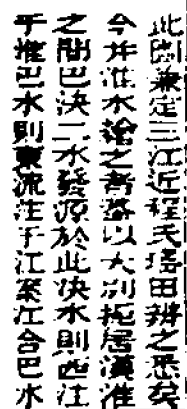 此圖兼定三江近程氏瑤田辨之悉矣
今并淮水繪之者蓋以大別居漢淮
之間巴決二水發源於此決水則西注
于淮巴水則東流注于江案江合巴水